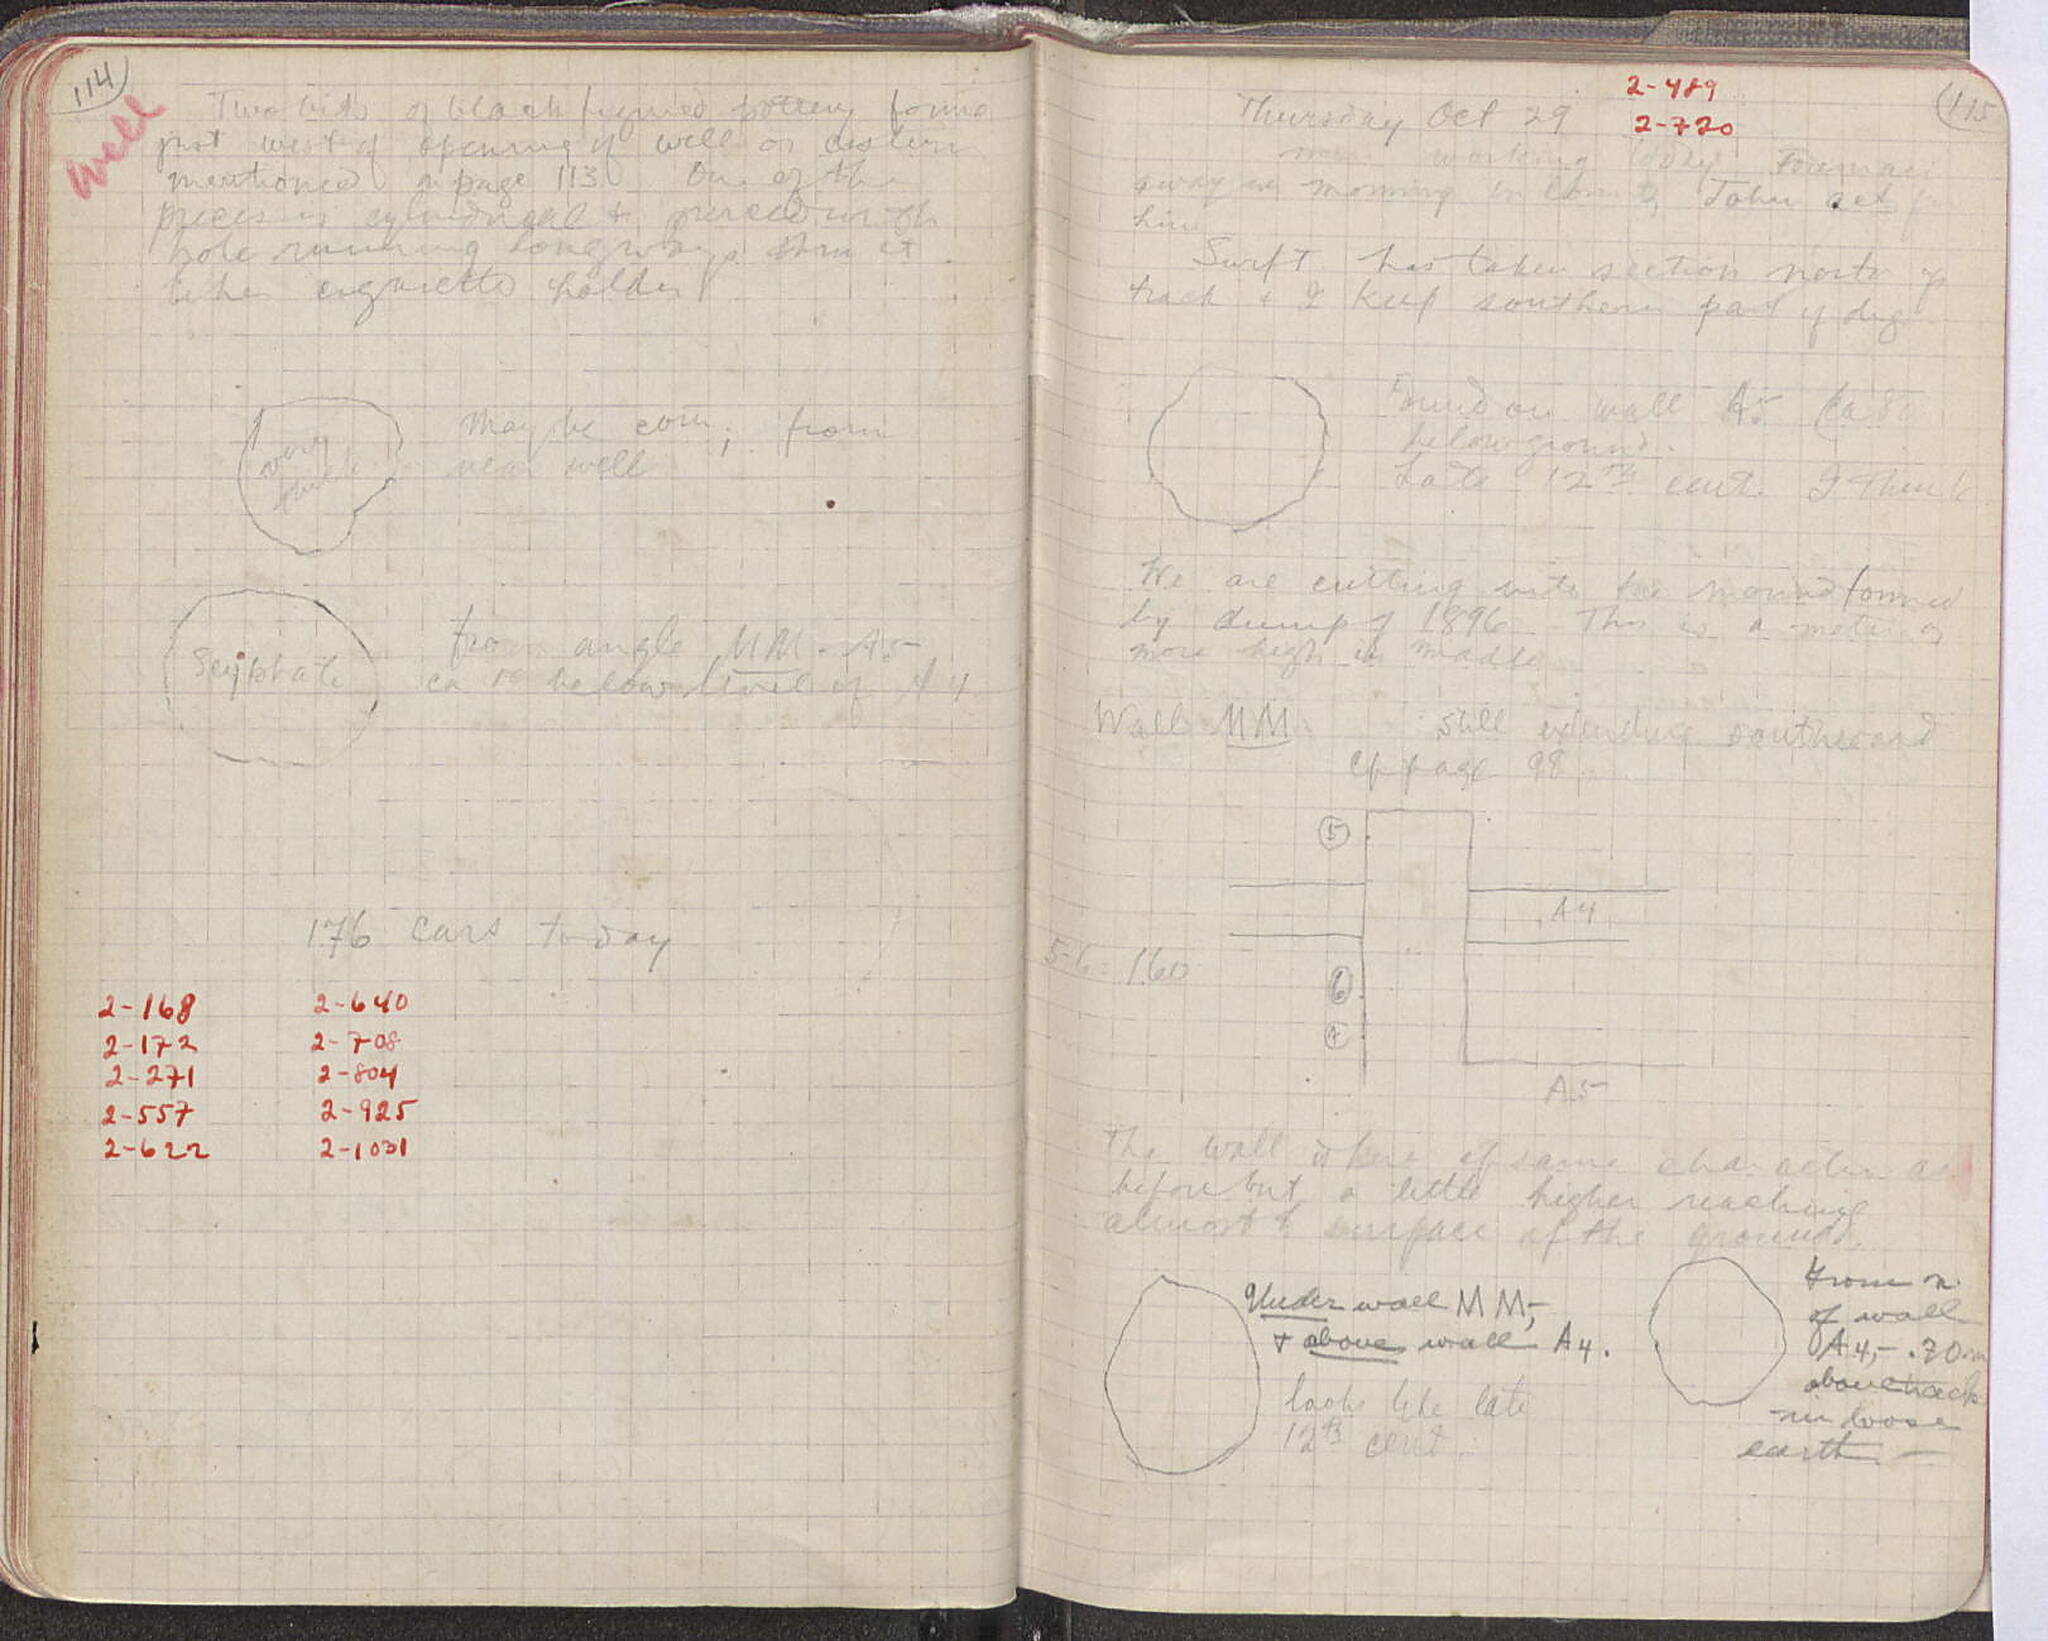 114
Well
Two bits of black figured pottery found
just west of opening of well or cistern
mentioned on page 113. One of the
pieces is cylindrical & pierced with
hole running longways thru it
like cigarette holder
very thick
May be coin; from
near well
Scyphate
from angle MM - A5
ca below level of A4
176 cars today
2-168 2-640
2-172 2-708
2-271 2-804
2-557 2-925
2-622 2-1031
115
Thursday Oct 29
2-489
2-720
men working today. Foreman
away in morning in Corinth, John act for
him
Swift has taken section north of
track & I keep southern part of dig
Found on wall A5 (ca 80
below ground.
Late 12th cent. I think
We are cutting into the mound formed
by dump of 1896. This is a meter or
more high in middle
Wall MM still extending southward
cf page 98
5
A4
5-6 = 1.60
6
7
A5
The wall is here of same character as
before but a little higher reaching
almost to surface of the ground.
Under wall MM,-
+ above wall A4.
looks like late
12th cent.
From n.
of wall
A4,- .70m
above track
in loose
earth -